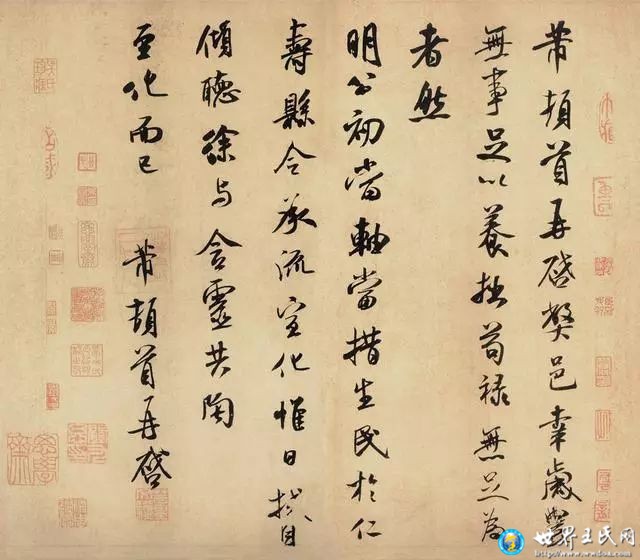 芾頓首再啓弊邑幸歲豐
無事足以養拙苟祿無足為
者然
明公初當軸當措生民於仁
壽縣令承流宣化惟日拭目
傾聽徐与含靈共陶
至化而已 芾頓首再啓
世界王氏网
www.wwdoa.com